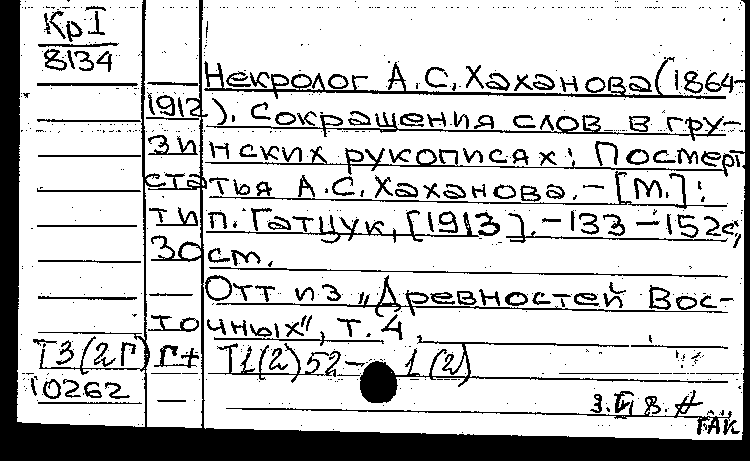 КрI
8134
Некролог А.С.Хаханова(1864-
1912). Сокращения слов в гру-
зинских рукописях: Посмерт.
статья А.С.Хаханова.-[М.]:
тип. Гатцук,[1913].-133-152с,
30см.
Отт из „Древностей Вос-
точных", т.4,
Т3(2Г) Г+ Т1(2)52- 1(2)
10262
ГАК